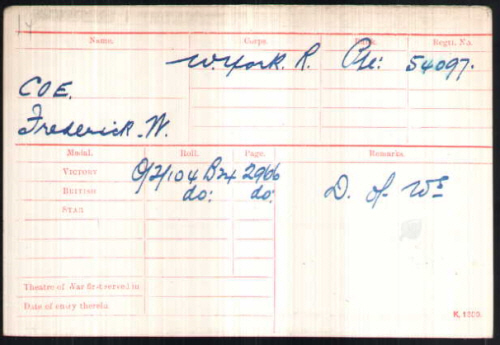 Name. Corps. Rank. Regtl. No.
W. York. R. Pte: 54097.
COE.
Frederick. W.
Medal. Roll. Page. Remarks.
VICTORY O/2/104 B24 2966
BRITISH do: do: D. of Ws
STAR
Theatre of War first served in
Date of entry therein
K. 1380.